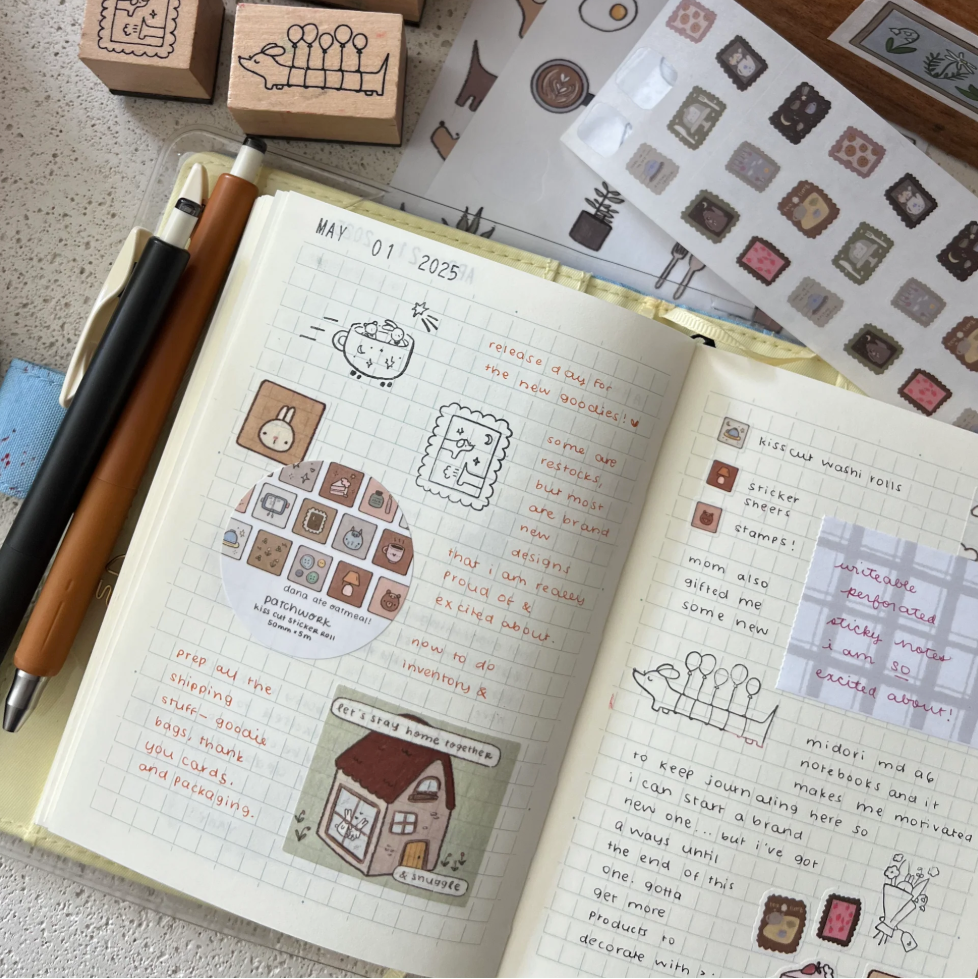 MAY 01 2025
release day for
the new goodies!
some are
restocks,
but most
are brand
new
designs
that i am really
proud of &
excited about.
now to do
inventory &
dana ate oatmeal!!
patchwork
kiss cut sticker roll
50mm × 5m
prep all the
shipping
stuff- goodie
bags, thank
you cards,
and packaging.
let's stay home together
& snuggle
kiss cut washi rolls
sticker
sheets
stamps!
mom also
gifted me
some new
writeable
perforated
sticky notes
i am so
excited about!
midori md a6
notebooks and it
makes me motivated
to keep journaling here so
i can start a brand
new one... but i've got
a ways until
the end of this
one. gotta
get more
products to
decorate with